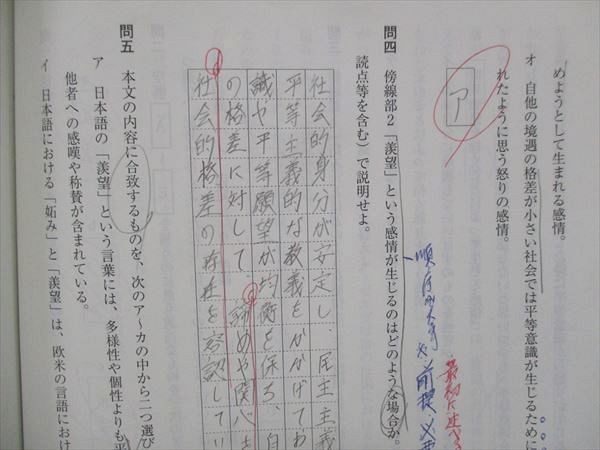 めようとして生まれる感情。
オ 自他の境遇の格差が小さい社会では平等意識が生じるために
れたように思う怒りの感情。
ア
問四 傍線部2「羨望」という感情が生じるのはどのような場合か。
読点等を含む）で説明せよ。
最初に述べる
前提
社会的身分が安定し、民主主義
平等主義的な教義をかかげてお
識や平等願望が均衡を保ち、自
の格差に対して、諦めや関心を
社会的格差の存在を容認してい
問五 本文の内容に合致するものを、次のア～カの中から二つ選び
ア 日本語の「羨望」という言葉には、多様性や個性よりも平
他者への感嘆や称賛が含まれている。
イ 日本語における「妬み」と「羨望」は、欧米の言語におけ